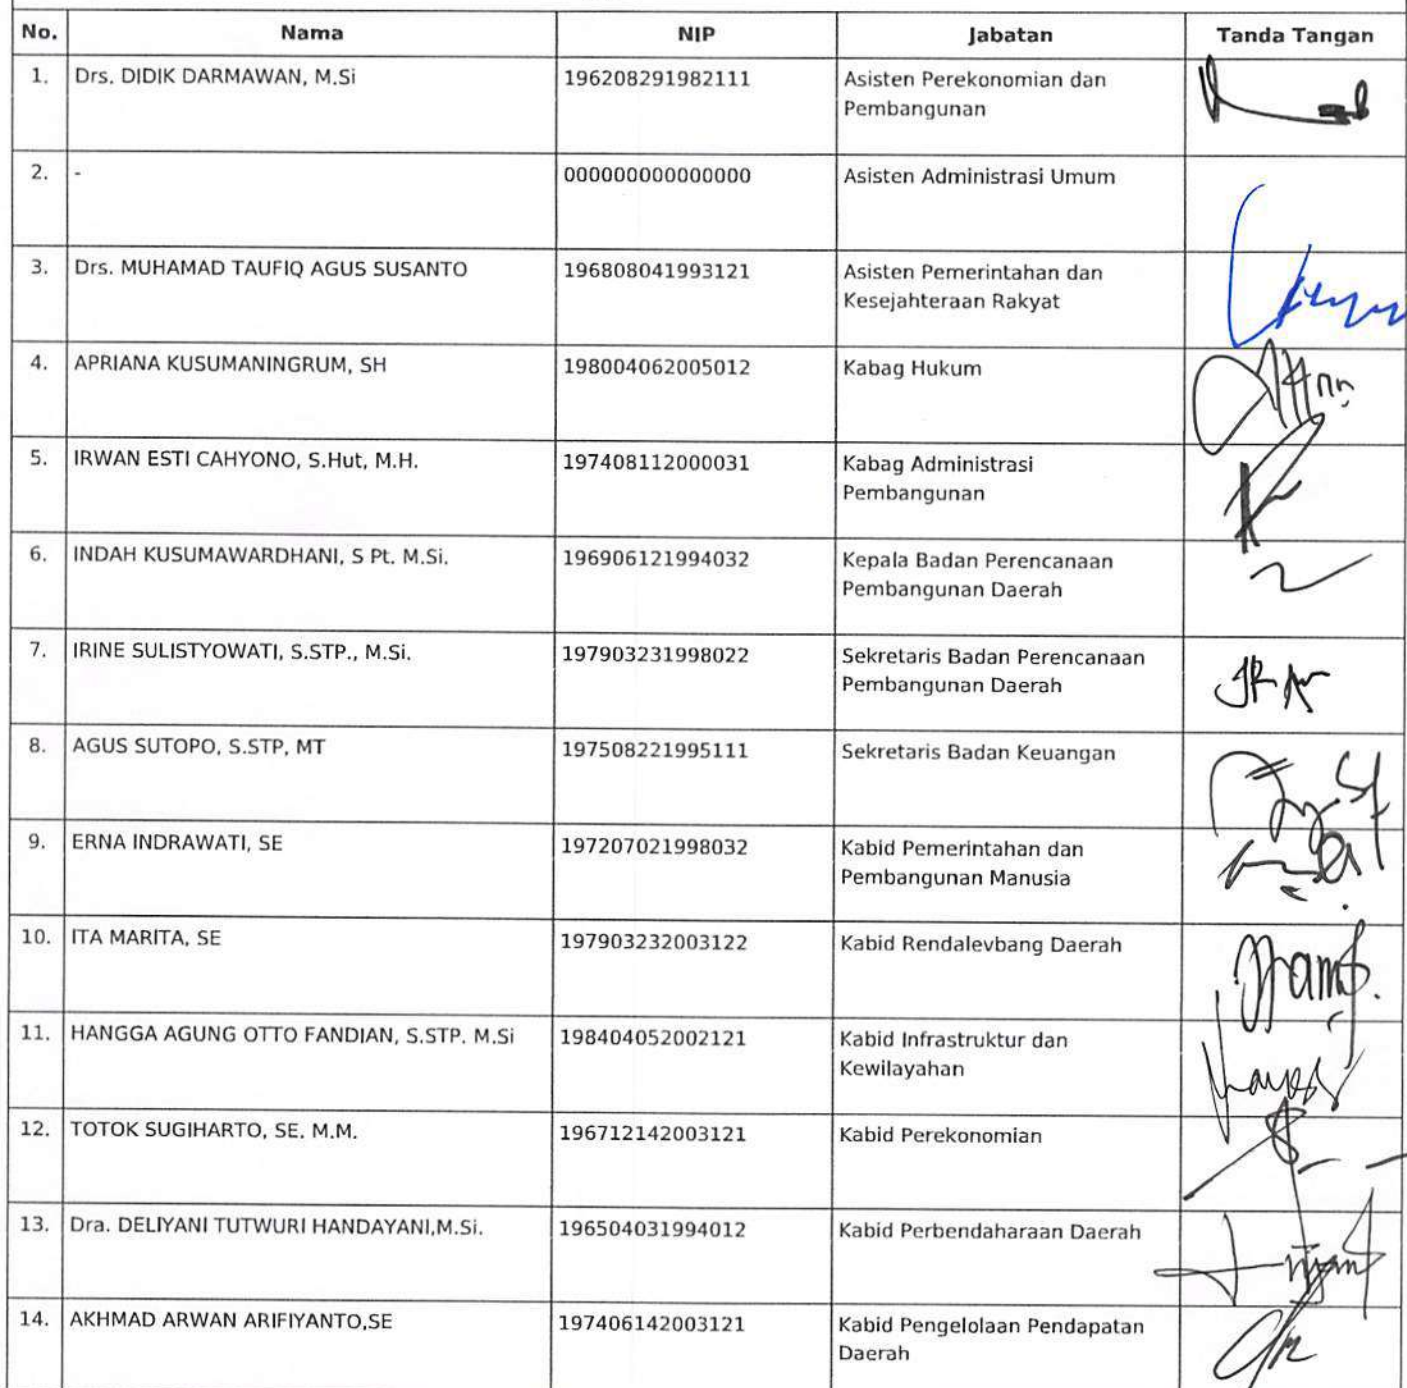 No. Nama NIP Jabatan Tanda Tangan
1. Drs. DIDIK DARMAWAN, M.Si 196208291982111 Asisten Perekonomian dan
Pembangunan
2. - 000000000000000 Asisten Administrasi Umum
3. Drs. MUHAMAD TAUFIQ AGUS SUSANTO 196808041993121 Asisten Pemerintahan dan
Kesejahteraan Rakyat
4. APRIANA KUSUMANINGRUM, SH 198004062005012 Kabag Hukum
5. IRWAN ESTI CAHYONO, S.Hut, M.H. 197408112000031 Kabag Administrasi
Pembangunan
6. INDAH KUSUMAWARDHANI, S Pt. M.Si. 196906121994032 Kepala Badan Perencanaan
Pembangunan Daerah
7. IRINE SULISTYOWATI, S.STP., M.Si. 197903231998022 Sekretaris Badan Perencanaan
Pembangunan Daerah
8. AGUS SUTOPO, S.STP, MT 197508221995111 Sekretaris Badan Keuangan
9. ERNA INDRAWATI, SE 197207021998032 Kabid Pemerintahan dan
Pembangunan Manusia
10. ITA MARITA, SE 197903232003122 Kabid Rendalevbang Daerah
11. HANGGA AGUNG OTTO FANDIAN, S.STP. M.Si 198404052002121 Kabid Infrastruktur dan
Kewilayahan
12. TOTOK SUGIHARTO, SE. M.M. 196712142003121 Kabid Perekonomian
13. Dra. DELIYANI TUTWURI HANDAYANI,M.Si. 196504031994012 Kabid Perbendaharaan Daerah
14. AKHMAD ARWAN ARIFIYANTO,SE 197406142003121 Kabid Pengelolaan Pendapatan
Daerah